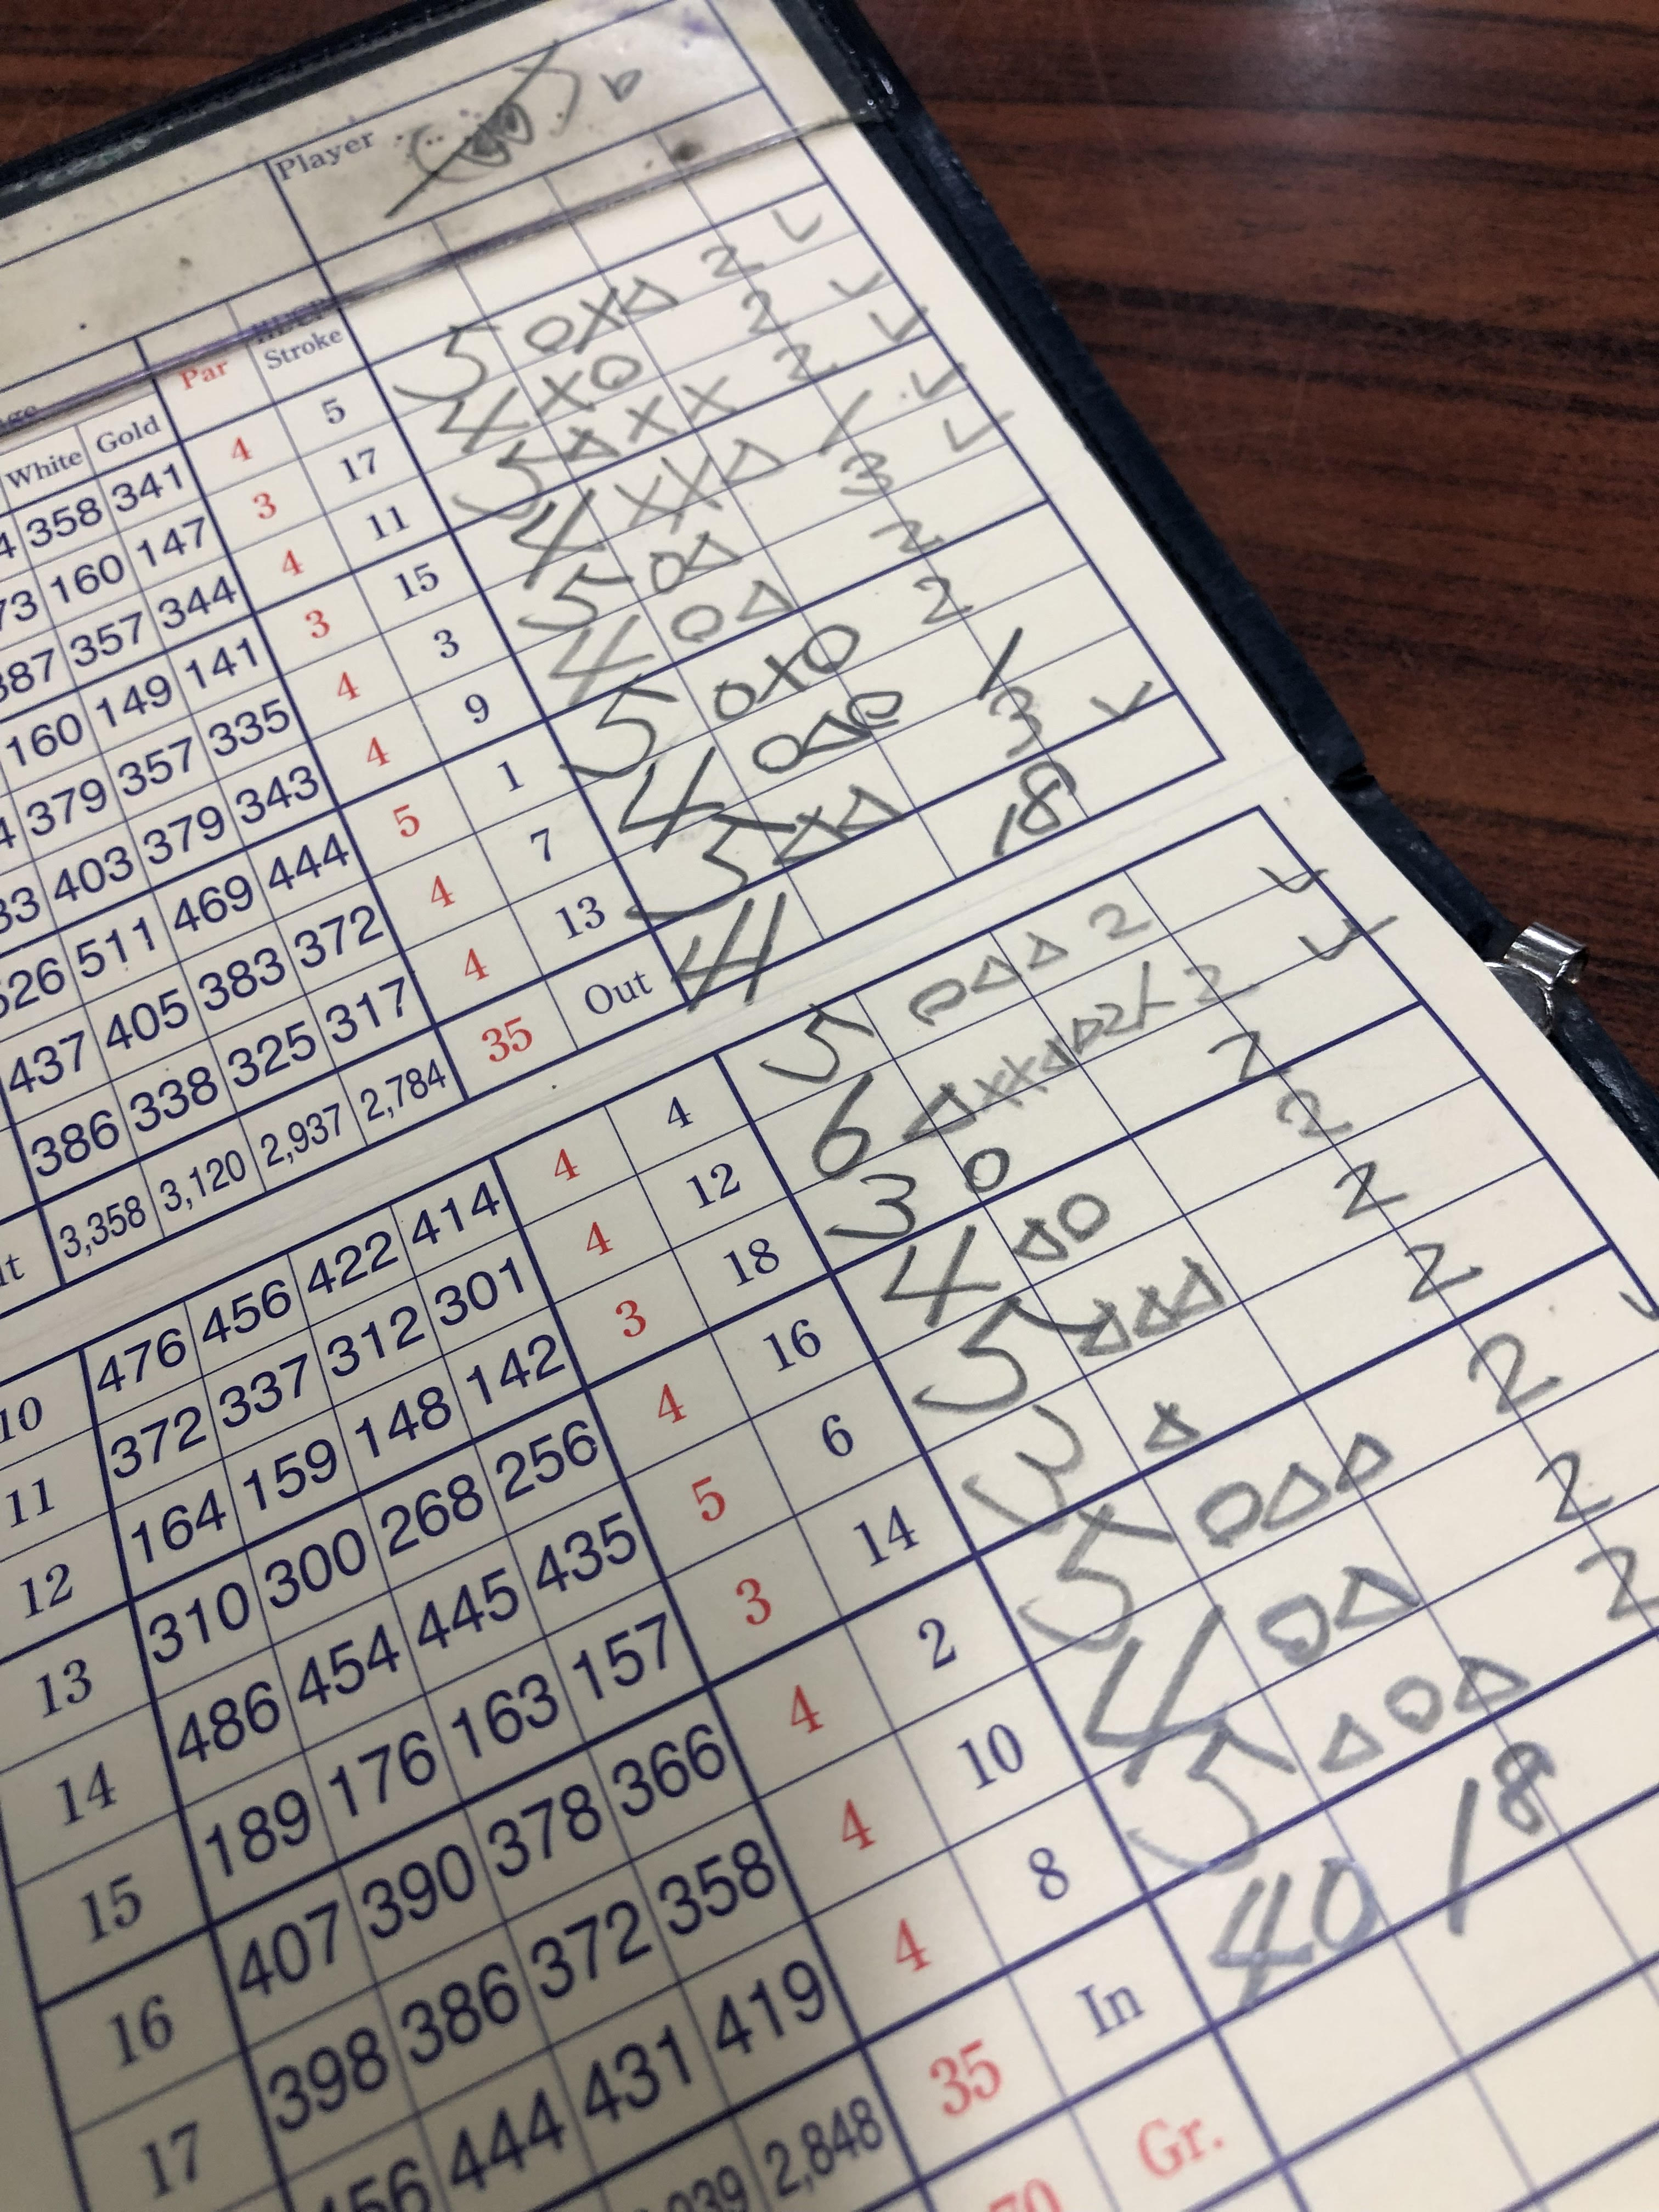 Player
HDCP
White Gold Par Stroke
358 341 4 5 5 O X △ 2 ✓
160 147 3 17 4 X O 2 ✓
357 344 4 11 5 △ X X 2 ✓
160 149 141 3 15 4 X X △ 1 ✓
379 357 335 4 3 5 O △ 3 ✓
403 379 343 4 9 4 O △ 2
511 469 444 5 1 5 O X O 2
437 405 383 372 4 7 4 O △ O 1
386 338 325 317 4 13 5 △ X △ 3 ✓
3,358 3,120 2,937 2,784 35 Out 41 18
10 476 456 422 414 4 4 5 O △ △ 2 ✓
11 372 337 312 301 4 12 6 △ X X △ △ 2 X 2 ✓
12 164 159 148 142 3 18 3 O 2
13 310 300 268 256 4 16 4 △ O 2
14 486 454 445 435 5 6 5 △ △ △ 2
15 189 176 163 157 3 14 3 △ 2 ✓
16 407 390 378 366 4 2 5 O △ △ 2
17 398 386 372 358 4 10 4 O △ 2
444 431 419 4 8 5 △ O △ 2
2,848 35 In 40 18
70 Gr.